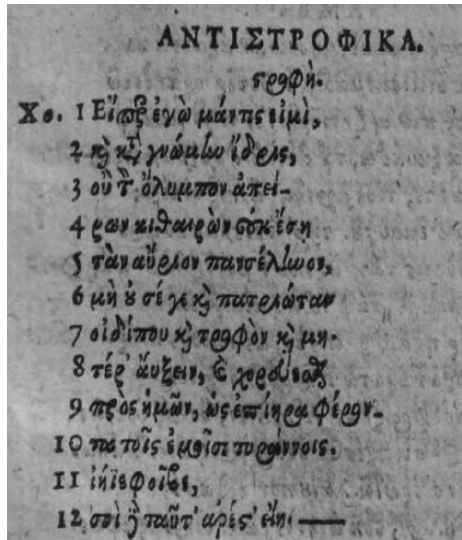 ΑΝΤΙΣΤΡΟΦΙΚΑ.
στροφή.
Χο. 1 Εἴπερ ἐγὼ μάντις εἰμὶ,
2 καὶ κατὰ γνώμην ἴδρις,
3 οὐ τὸν ὄλυμπον ἀπεί-
4 ρων κιθαιρὼν οὐκ ἔσῃ
5 τὰν αὔριον πανσέληνον,
6 μὴ οὐ σέ γε καὶ πατριώταν
7 οἰδίπου καὶ τροφὸν καὶ μη-
8 τέρ' αὔξειν, καὶ χορεύεσθαι
9 πρὸς ἡμῶν, ὡς ἐπίηρα φέρον-
10 τα τοῖς ἐμοῖσι τυράννοις.
11 ἰήϊε φοῖβε,
12 σοὶ δὲ ταῦτ' ἀρέσ' εἴη.